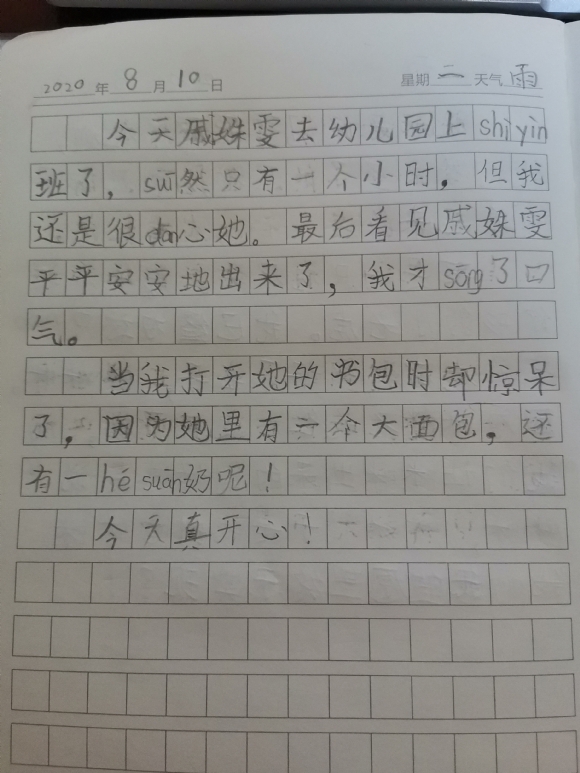 2020年8月10日 星期二天气雨
今天戚姝雯去幼儿园上shìyìn
班了，suī然只有一个小时，但我
还是很dān心她。最后看见戚姝雯
平平安安地出来了，我才sōng了口
气。
当我打开她的书包时却惊呆
了，因为她里有一个大面包，还
有一hé suān奶呢！
今天真开心！